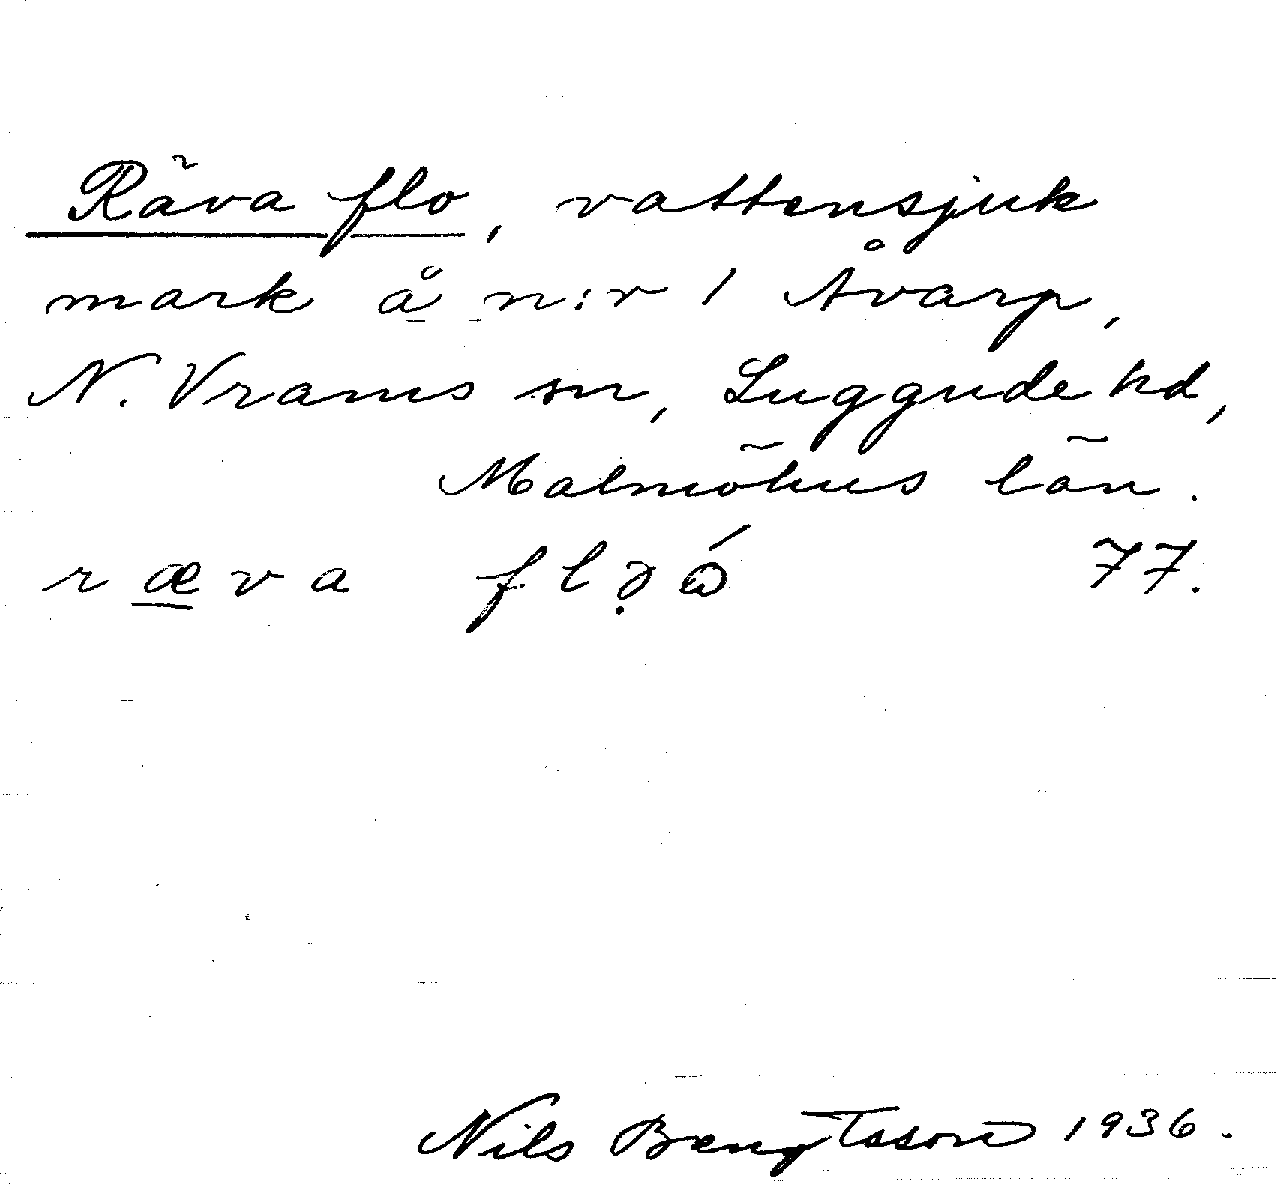 Räva flo, vattensjuk
mark å n:r 1 Åvarp,
N. Vrams sn, Luggude hd,
Malmöhus län.
ræva flə̣ó 77.
Nils Bengtsson 1936.